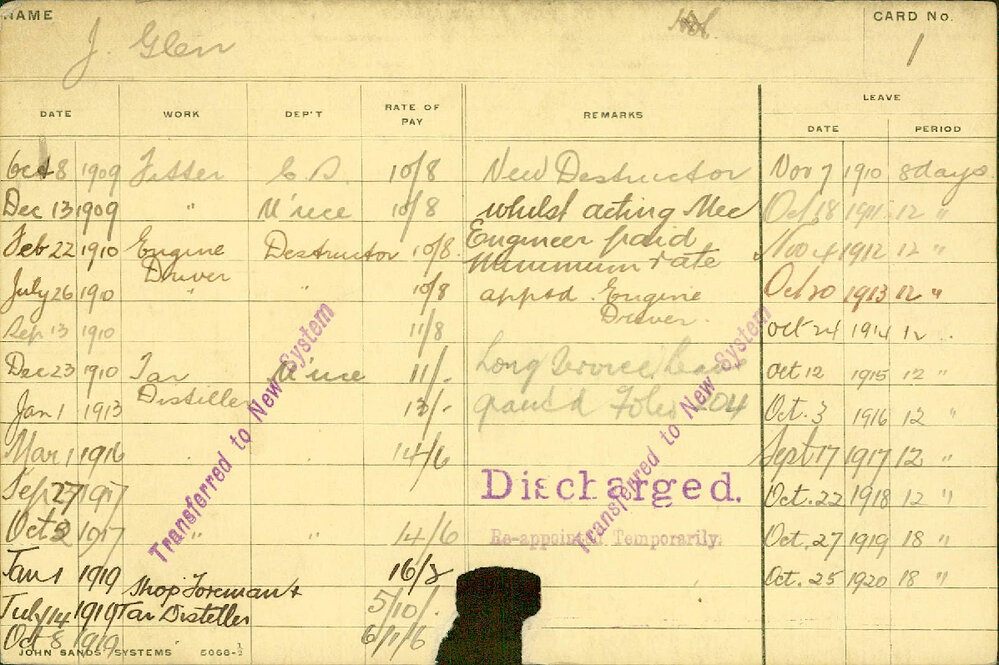 NAME
J. Glen
CARD No.
1
DATE WORK DEP'T RATE OF PAY REMARKS LEAVE
DATE PERIOD
Oct 8 1909 Fitter C.D. 10/8 New Destructor Nov 7 1910 8 days
Dec 13 1909 " M'nce 10/8 whilst acting Mec Oct 18 1911 12 "
Feb 22 1910 Engine Destructor 10/8 Engineer paid Nov 4 1912 12 "
Driver Minimum rate
July 26 1910 " " 10/8 apptd. Engine Oct 20 1913 12 "
Driver.
Sep 13 1910 11/8 Oct 24 1914 12 "
Dec 23 1910 Tar M'nce 11/- Long Service Leave Oct 12 1915 12 "
Distiller
Jan 1 1913 13/- grant'd Folio 204 Oct. 3 1916 12 "
Mar 1 1916 14/6 Sept 17 1917 12 "
Sep 27 1917 Discharged. Oct. 22 1918 12 "
Oct 2 1917 " " 14/6 Re-appointed Temporarily. Oct. 27 1919 18 "
Jan 1 1919 16/2 Oct. 25 1920 18 "
Shop Foreman &
July 14 1919 Tar Distiller 5/10/-
Oct 8 1919 6/1/6
Transferred to New System
Transferred to New System
JOHN SANDS SYSTEMS 5068-½